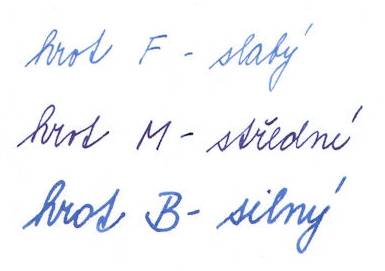 hrot F - slabý
hrot M - střední
hrot B - silný